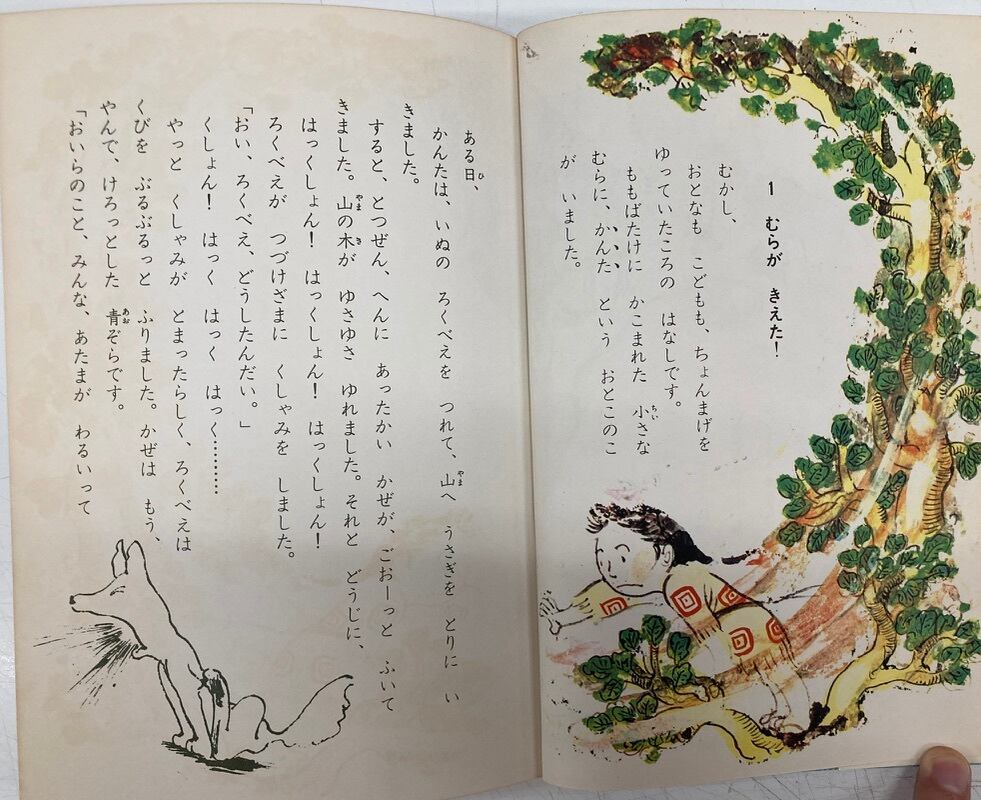 1 むらが きえた!
むかし、
おとなも こどもも、ちょんまげを
ゆっていたころの はなしです。
ももばたけに かこまれた 小さな
むらに、かんた という おとこのこ
が いました。
ある日、
かんたは、いぬの ろくべえを つれて、山へ うさぎを とりに い
きました。
すると、とつぜん、へんに あったかい かぜが、ごおーっと ふいて
きました。山の木が ゆさゆさ ゆれました。それと どうじに、
はっくしょん! はっくしょん! はっくしょん!
ろくべえが つづけざまに くしゃみを しました。
「おい、ろくべえ、どうしたんだい。」
くしょん! はっく はっく はっく………
やっと くしゃみが とまったらしく、ろくべえは
くびを ぶるぶるっと ふりました。かぜは もう、
やんで、けろっとした 青ぞらです。
「おいらのこと、みんな、あたまが わるいって